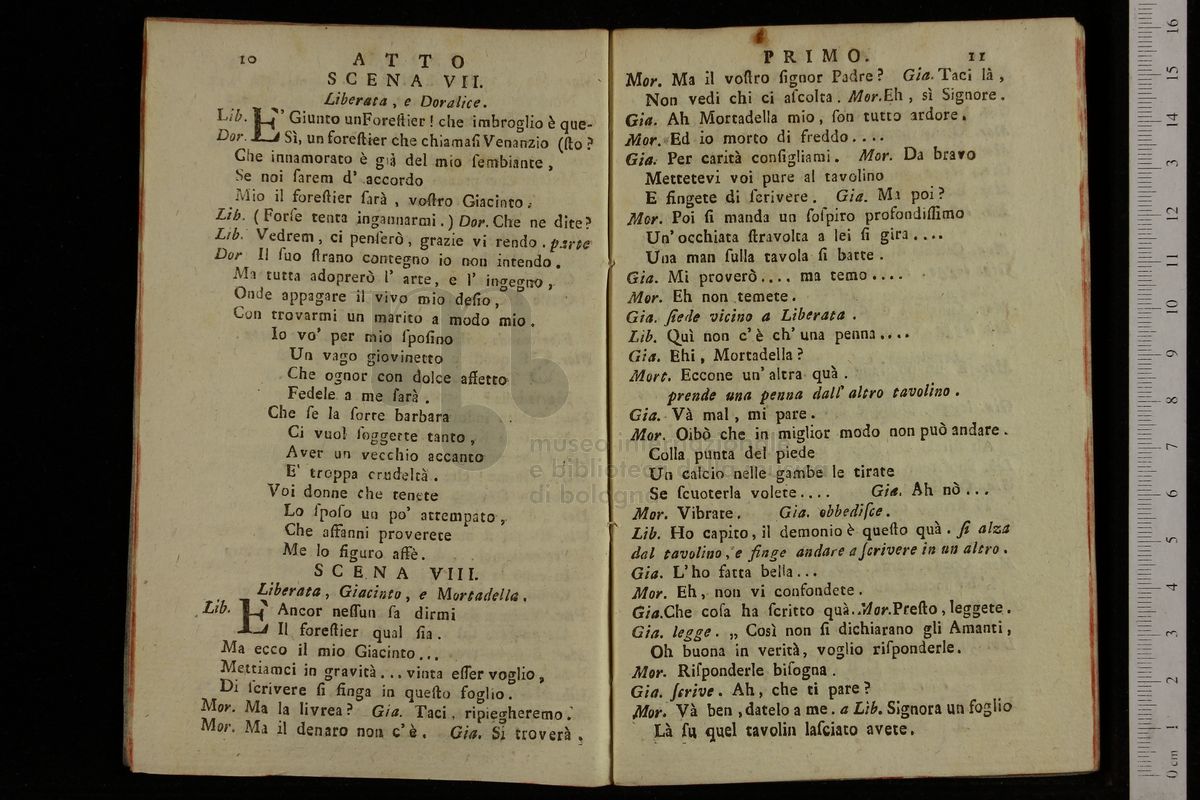 10
ATTO
SCENA VII.
Liberata, e Doralice.
Lib. E' Giunto unForeſtier! che imbroglio è que-
Dor. Sì, un foreſtier che chiamaſi Venanzio (ſto?
Che innamorato è già del mio ſembiante,
Se noi ſarem d' accordo
Mio il foreſtier ſarà, voſtro Giacinto.
Lib. (Forſe tenta ingannarmi.) Dor. Che ne dite?
Lib. Vedrem, ci penſerò, grazie vi rendo. parte
Dor Il ſuo ſtrano contegno io non intendo.
Ma tutta adoprerò l' arte, e l' ingegno,
Onde appagare il vivo mio deſio,
Con trovarmi un marito a modo mio.
Io vo' per mio ſpoſino
Un vago giovinetto
Che ognor con dolce affetto
Fedele a me ſarà.
Che ſe la ſorte barbara
Ci vuol ſoggette tanto,
Aver un vecchio accanto
E' troppa crudeltà.
Voi donne che tenete
Lo ſpoſo un po' attempato,
Che affanni proverete
Me lo figuro affè.
SCENA VIII.
Liberata, Giacinto, e Mortadella.
Lib. E Ancor neſſun ſa dirmi
Il foreſtier qual ſia.
Ma ecco il mio Giacinto...
Mettiamci in gravità... vinta eſſer voglio,
Di ſcrivere ſi finga in queſto foglio.
Mor. Ma la livrea? Gia. Taci, ripiegheremo.
Mor. Ma il denaro non c'è. Gia. Si troverà.
PRIMO.
11
Mor. Ma il voſtro ſignor Padre? Gia. Taci là,
Non vedi chi ci aſcolta. Mor. Eh, sì Signore.
Gia. Ah Mortadella mio, ſon tutto ardore.
Mor. Ed io morto di freddo....
Gia. Per carità conſigliami. Mor. Da bravo
Mettetevi voi pure al tavolino
E fingete di ſcrivere. Gia. Ma poi?
Mor. Poi ſi manda un ſoſpiro profondiſſimo
Un' occhiata ſtravolta a lei ſi gira....
Una man ſulla tavola ſi batte.
Gia. Mi proverò.... ma temo....
Mor. Eh non temete.
Gia. ſiede vicino a Liberata.
Lib. Quì non c'è ch' una penna....
Gia. Ehi, Mortadella?
Mort. Eccone un' altra quà.
prende una penna dall' altro tavolino.
Gia. Và mal, mi pare.
Mor. Oibò che in miglior modo non può andare.
Colla punta del piede
Un calcio nelle gambe le tirate
Se ſcuoterla volete.... Gia. Ah nò...
Mor. Vibrate. Gia. obbediſce.
Lib. Ho capito, il demonio è queſto quà. ſi alza
dal tavolino, e finge andare a ſcrivere in un altro.
Gia. L'ho fatta bella...
Mor. Eh, non vi confondete.
Gia. Che coſa ha ſcritto quà.. Mor. Preſto, leggete.
Gia. legge. „ Così non ſi dichiarano gli Amanti,
Oh buona in verità, voglio riſponderle.
Mor. Riſponderle biſogna.
Gia. ſcrive. Ah, che ti pare?
Mor. Và ben, datelo a me. a Lib. Signora un foglio
Là ſu quel tavolin laſciato avete.
museo internazionale
e biblioteca della musica
di bologna
0 cm 1 2 3 4 5 6 7 8 9 10 11 12 13 14 15 16